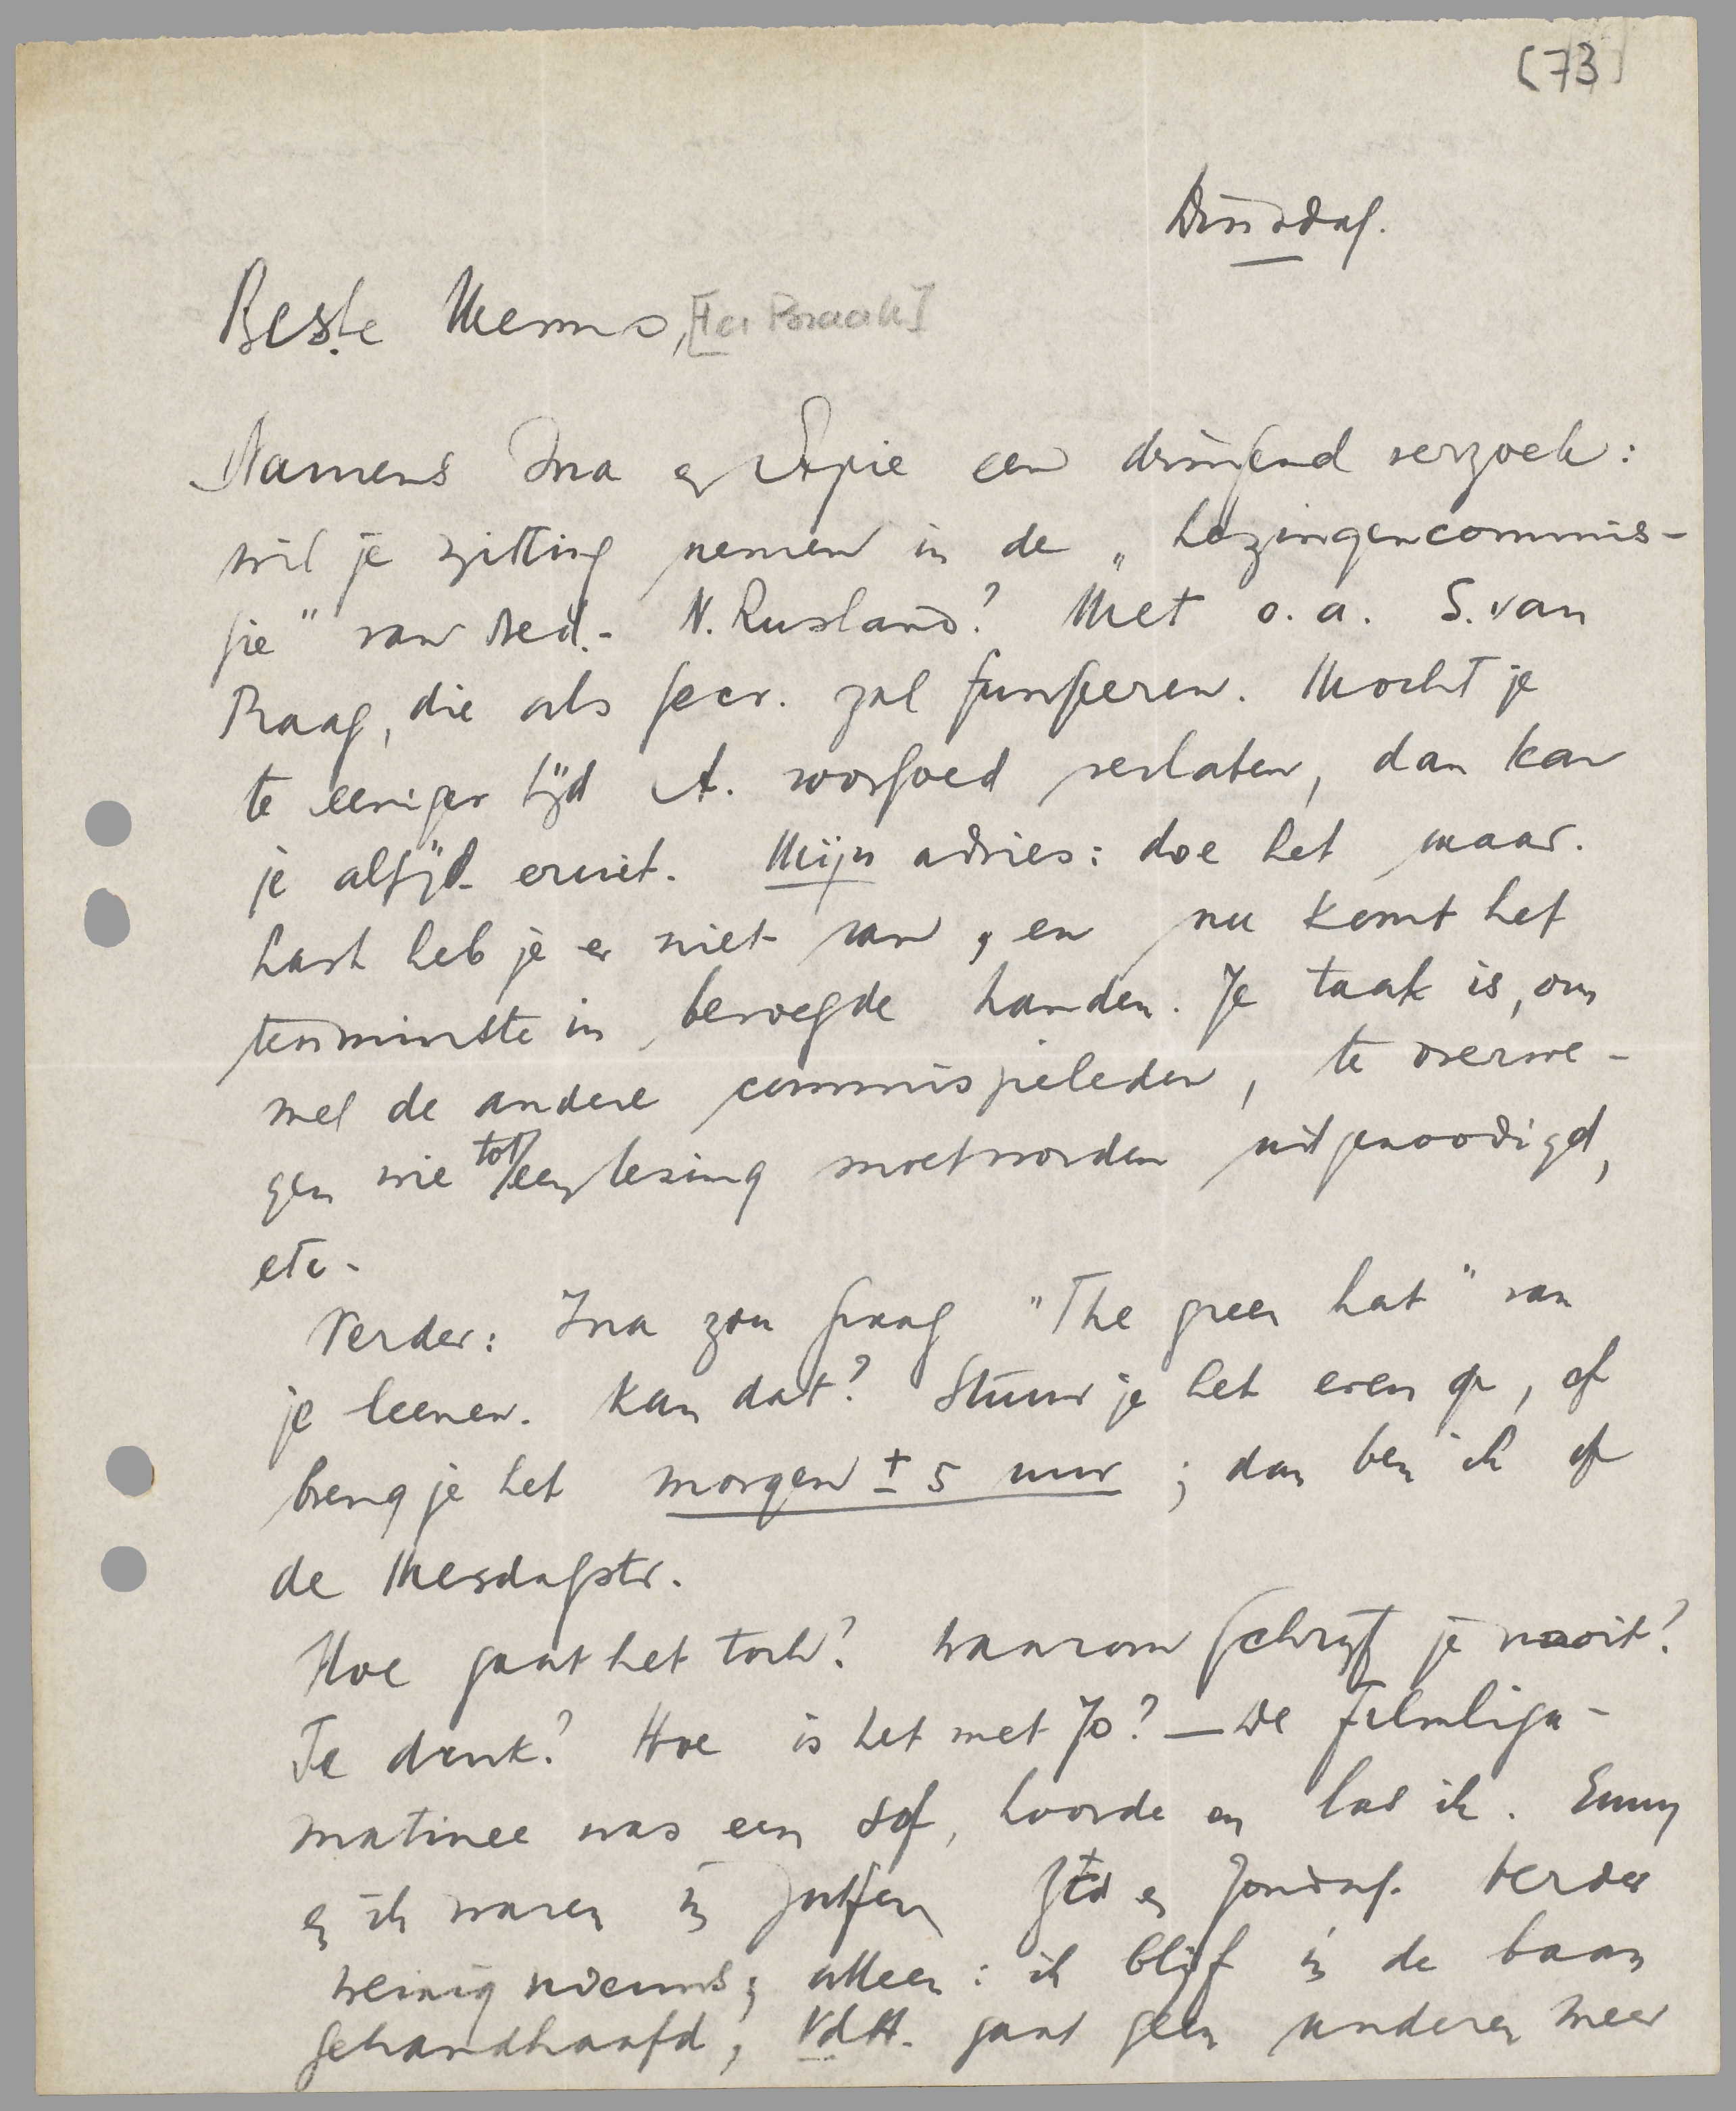 [73]
Dinsdag.
Beste Menno, [ter Braak]
Namens Ina en Apie een dringend verzoek:
wil je zitting nemen in de „Lezingencommis-
sie” van Ned.- N. Rusland? Met o.a. S. van
Praag, die als secr. zal fungeren. Mocht je
te eeniger tijd A. voorgoed verlaten, dan kan
je altijd eruit. Mijn advies: doe het maar.
Last heb je er niet van, en nu komt het
tenminste in bevoegde handen. Je taak is, om
met de andere commissieleden, te overwe-
gen wie tot een lezing moet worden uitgenoodigd,
etc.
Verder: Ina zou graag "The green hat" van
je leenen. Kan dat? Stuur je het even op, of
breng je het morgen ± 5 uur; dan ben ik op
de Mesdagstr.
Hoe gaat het toch? Waarom schrijf je nooit?
Te druk? Hoe is het met Jo? — De Filmliga-
matinee was een sof, hoorde en las ik. Emmy
en ik waren in Zutfen Ztd en Zondag. Verder
weinig nieuws; alleen: ik blijf in de baan
gehandhaafd, VdH. gaat geen anderen meer